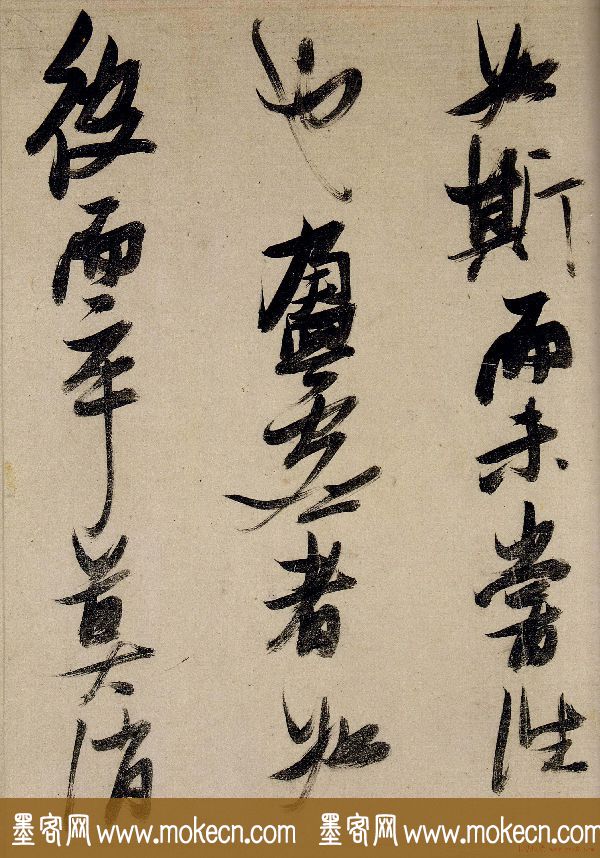 如斯而未嘗往
也盈虛者如
彼而卒莫消
墨客网 www.mokecn.com 墨客网 www.mokecn.com